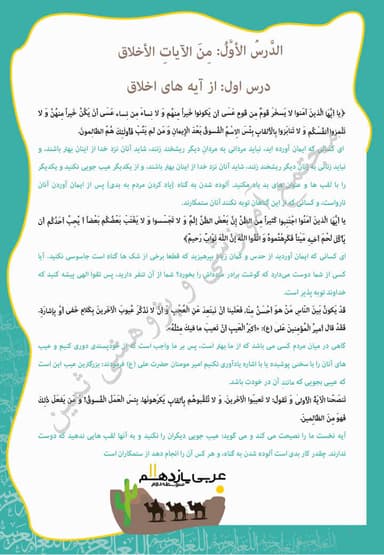 الدَّرسُ الأَوَّلُ: مِنَ الآياتِ الأخلاق
درس اول: از آیه های اخلاق
﴿یا أیُّهَا الَّذینَ آمَنوا لا یَسخَرْ قَومٌ مِن قَومٍ عَسَی أن یَکونوا خَیراً مِنهُم وَ لا نِساءٌ مِن نِساءٍ عَسَی أن یَکُنَّ خَیراً مِنهُنَّ وَ لا
تَلمِزوا أنفُسَکُم وَ لا تَنابَزوا بِالألقابِ بِئسَ الاِسمُ الفُسوقُ بَعدَ الإیمانِ وَ مَن لَم یَتُب فَأولئِکَ هُمُ الظالِمونَ.
ای کسانی که ایمان آورده اید، نباید مردانی به مردان دیگر ریشخند زنند، شاید آنان نزد خدا از اینان بهتر باشند، و
نباید زنانی به زنان دیگر ریشخند زنند، شاید آنان نزد خدا از اینان بهتر باشند، و از یکدیگر عیب جویی نکنید و یکدیگر
را با لقب ها و عنوان های بد یاد مکنید. آلوده شدن به گناه (یاد کردن مردم به بدی) پس از ایمان آوردن آنان
نارواست، و کسانی که از این گناهان توبه نکنند آنان ستمکارند.
یا أیُّهَا الَّذینَ آمَنوا اجْتَنِبوا کَثیراً مِنَ الظَّنِّ إنَّ بَعضَ الظَّنِّ إثمٌ وَ لا تَجَسَّسوا وَ لا یَغتَب بَعضُکُم بَعضاً أ یُحِبُّ أحَدُکُم أن
یَأکُلَ لَحمَ أخیهِ مَیتاً فَکَرِهتُموهُ وَ اتَّقوا اللهَ إنَّ اللهَ تَوّابٌ رَحیمٌ﴾
ای کسانی که ایمان آوردید از حدس و گمان زیاد بپرهیزید که قطعا برخی از شک ها گناه است جاسوسی نکنید. آیا
کسی از شما دوست می‌دارد که گوشت برادر مرده‌اش را بخورد؟ شما از آن تنفر دارید، پس تقوا الهی پیشه کنید که
خداوند توبه پذیر است.
قَد یَکونُ بَینَ النّاسِ مَن هوَ أحسَنُ مِنّا، فَعَلَینا أن نَبتَعِدَ عَنِ العُجبِ وَ أن لا نَذکُرَ عُیوبَ الآخَرینَ بِکَلامٍ خَفیٍّ أو بِإشارَةٍ.
فَقَد قالَ أمیرُ المُؤمِنینَ عَلیٌّ (ع): «أکبَرُ العَیبِ أن تَعیبَ ما فیکَ مِثلُهُ.»
گاهی در میان مردم کسی می باشد که از ما بهتر است، پس بر ما واجب است که از خودپسندی دوری کنیم و عیب
های آنان را با سخنی پوشیده یا با اشاره یادآوری نکنیم امیر مومنان حضرت علی (ع) فرمودند: بزرگترین عیب این است
که عیبی بجویی که مانند آن در خودت باشد.
تَنصَحُنا الآیَةُ الأولیٰ وَ تَقولُ: لا تَعیبُوا الآخَرینَ. وَ لا تُلَقِّبوهُم بِألقابٍ یَکرَهونَها. بِئسَ العَمَلُ الفُسوقُ! وَ مَن یَفعَل ذلِکَ
فَهوَ مِنَ الظّالِمینَ.
آیه نخست ما را نصیحت می کند و می گوید: عیب جویی دیگران را نکنید و به آنها لقب هایی ندهید که دوست
ندارند. چقدر کار بدی است آلوده شدن به گناه، و هر کس آن را انجام دهد از ستمکاران است
عربی یازدهم